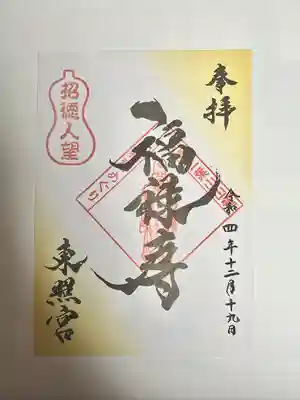 奉拝
令和四年十二月十九日
福禄寿
招徳人望
東照宮
めぐり